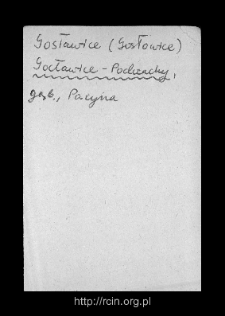 Gosławice (Gosłowice)
Gocławice - Podrzechy,
gąb., Pacyna
http://rcin.org.pl